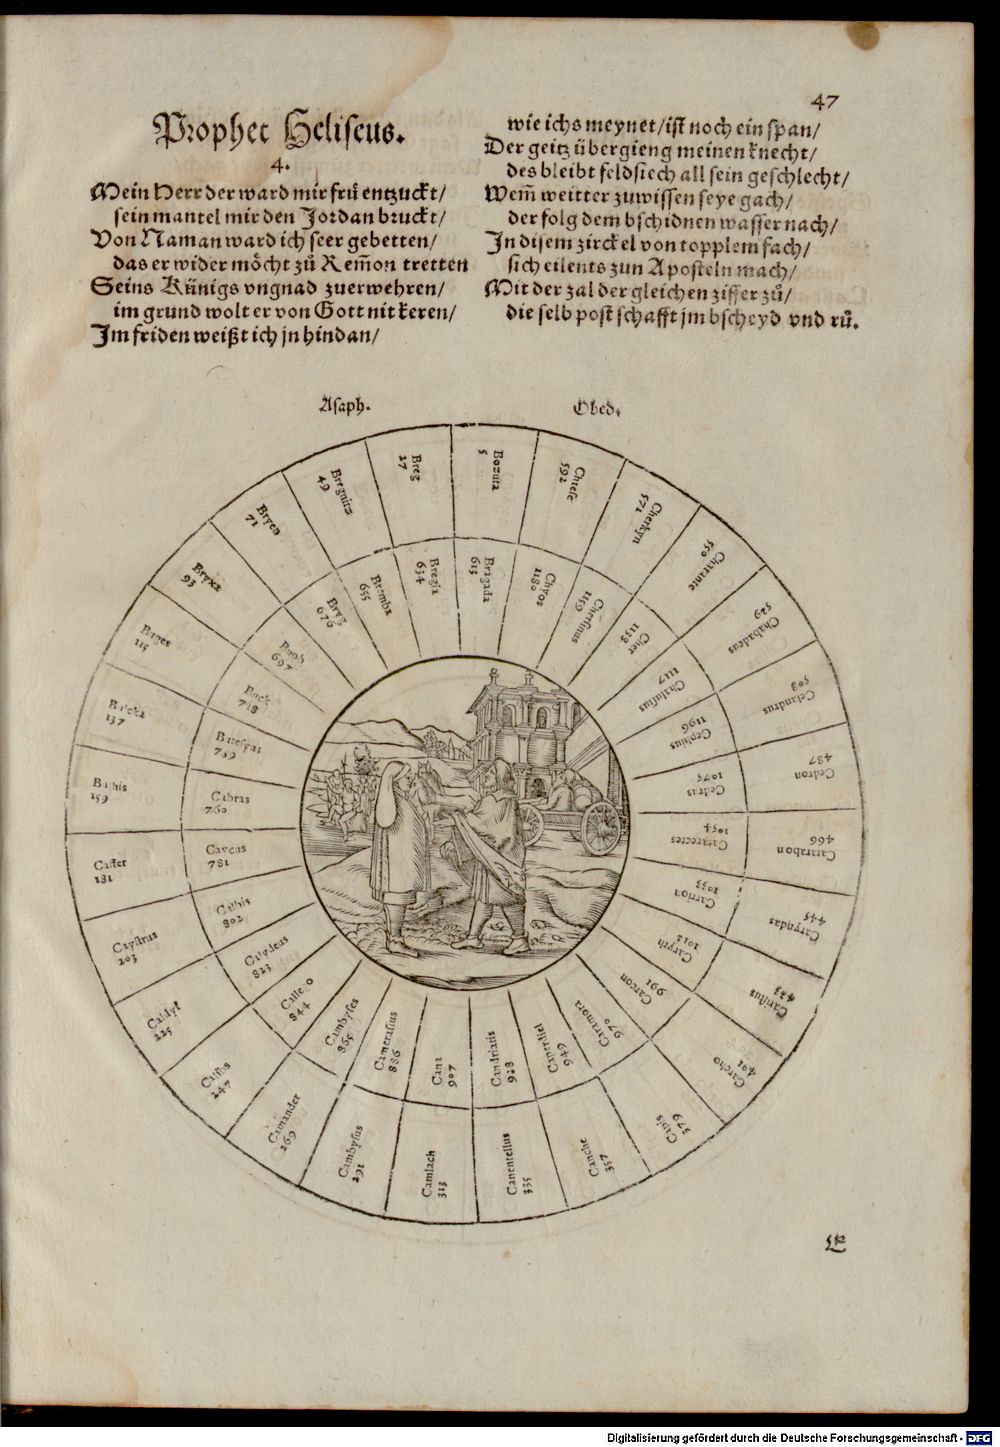 47
Prophet Heliseus.
4.
Mein Herr der ward mir frü entzuckt/
sein mantel mir den Jordan bruckt/
Von Naman ward ich seer gebetten/
das er wider möcht zů Rem̄on tretten
Seins Künigs vngnad zuerwehren/
im grund wolt er von Gott nit keren/
Im friden weißt ich jn hindan/
wie ichs meynet/ist noch ein span/
Der geitz übergieng meinen knecht/
des bleibt feldsiech all sein geschlecht/
Wem̄ weitter zuwissen seye gach/
der folg dem bschidnen wasser nach/
In disem zirckel von topplem fach/
sich eilents zun Aposteln mach/
Mit der zal der gleichen ziffer zů/
die selb post schafft jm bscheyd vnd rů.
Asaph.
Obed.
Bozuta
5
Chiese
592
Cherksyn
571
Charante
550
Chabadeus
529
Celandrus
508
Cedron
487
Catarabon
466
Caryndas
445
Caristus
423
Carcho
401
Capis
379
Canche
357
Canentellus
335
Camlach
313
Cambysus
291
Camander
269
Caistus
247
225
Caystrus
203
Caffer
181
159
137
Buges
115
Bryxa
93
Bryen
71
Bregnitz
49
Breg
27
Bragada
613
Chyos
1180
Chersinus
1159
Cher
1138
Chalusius
1117
Cephius
1196
Cedrus
1075
Catarectes
1054
Carrion
1033
Caryth
1012
Carcon
991
Caramora
970
Canerstel
949
Candriaris
928
Cana
907
Camerasius
886
Cambyses
865
844
Calydcus
823
Calbis
802
Caycus
781
Cabras
760
Butesyus
739
Buck
718
697
Bryg
676
Bremba
655
Bregia
634
Digitalisierung gefördert durch die Deutsche Forschungsgemeinschaft - DFG